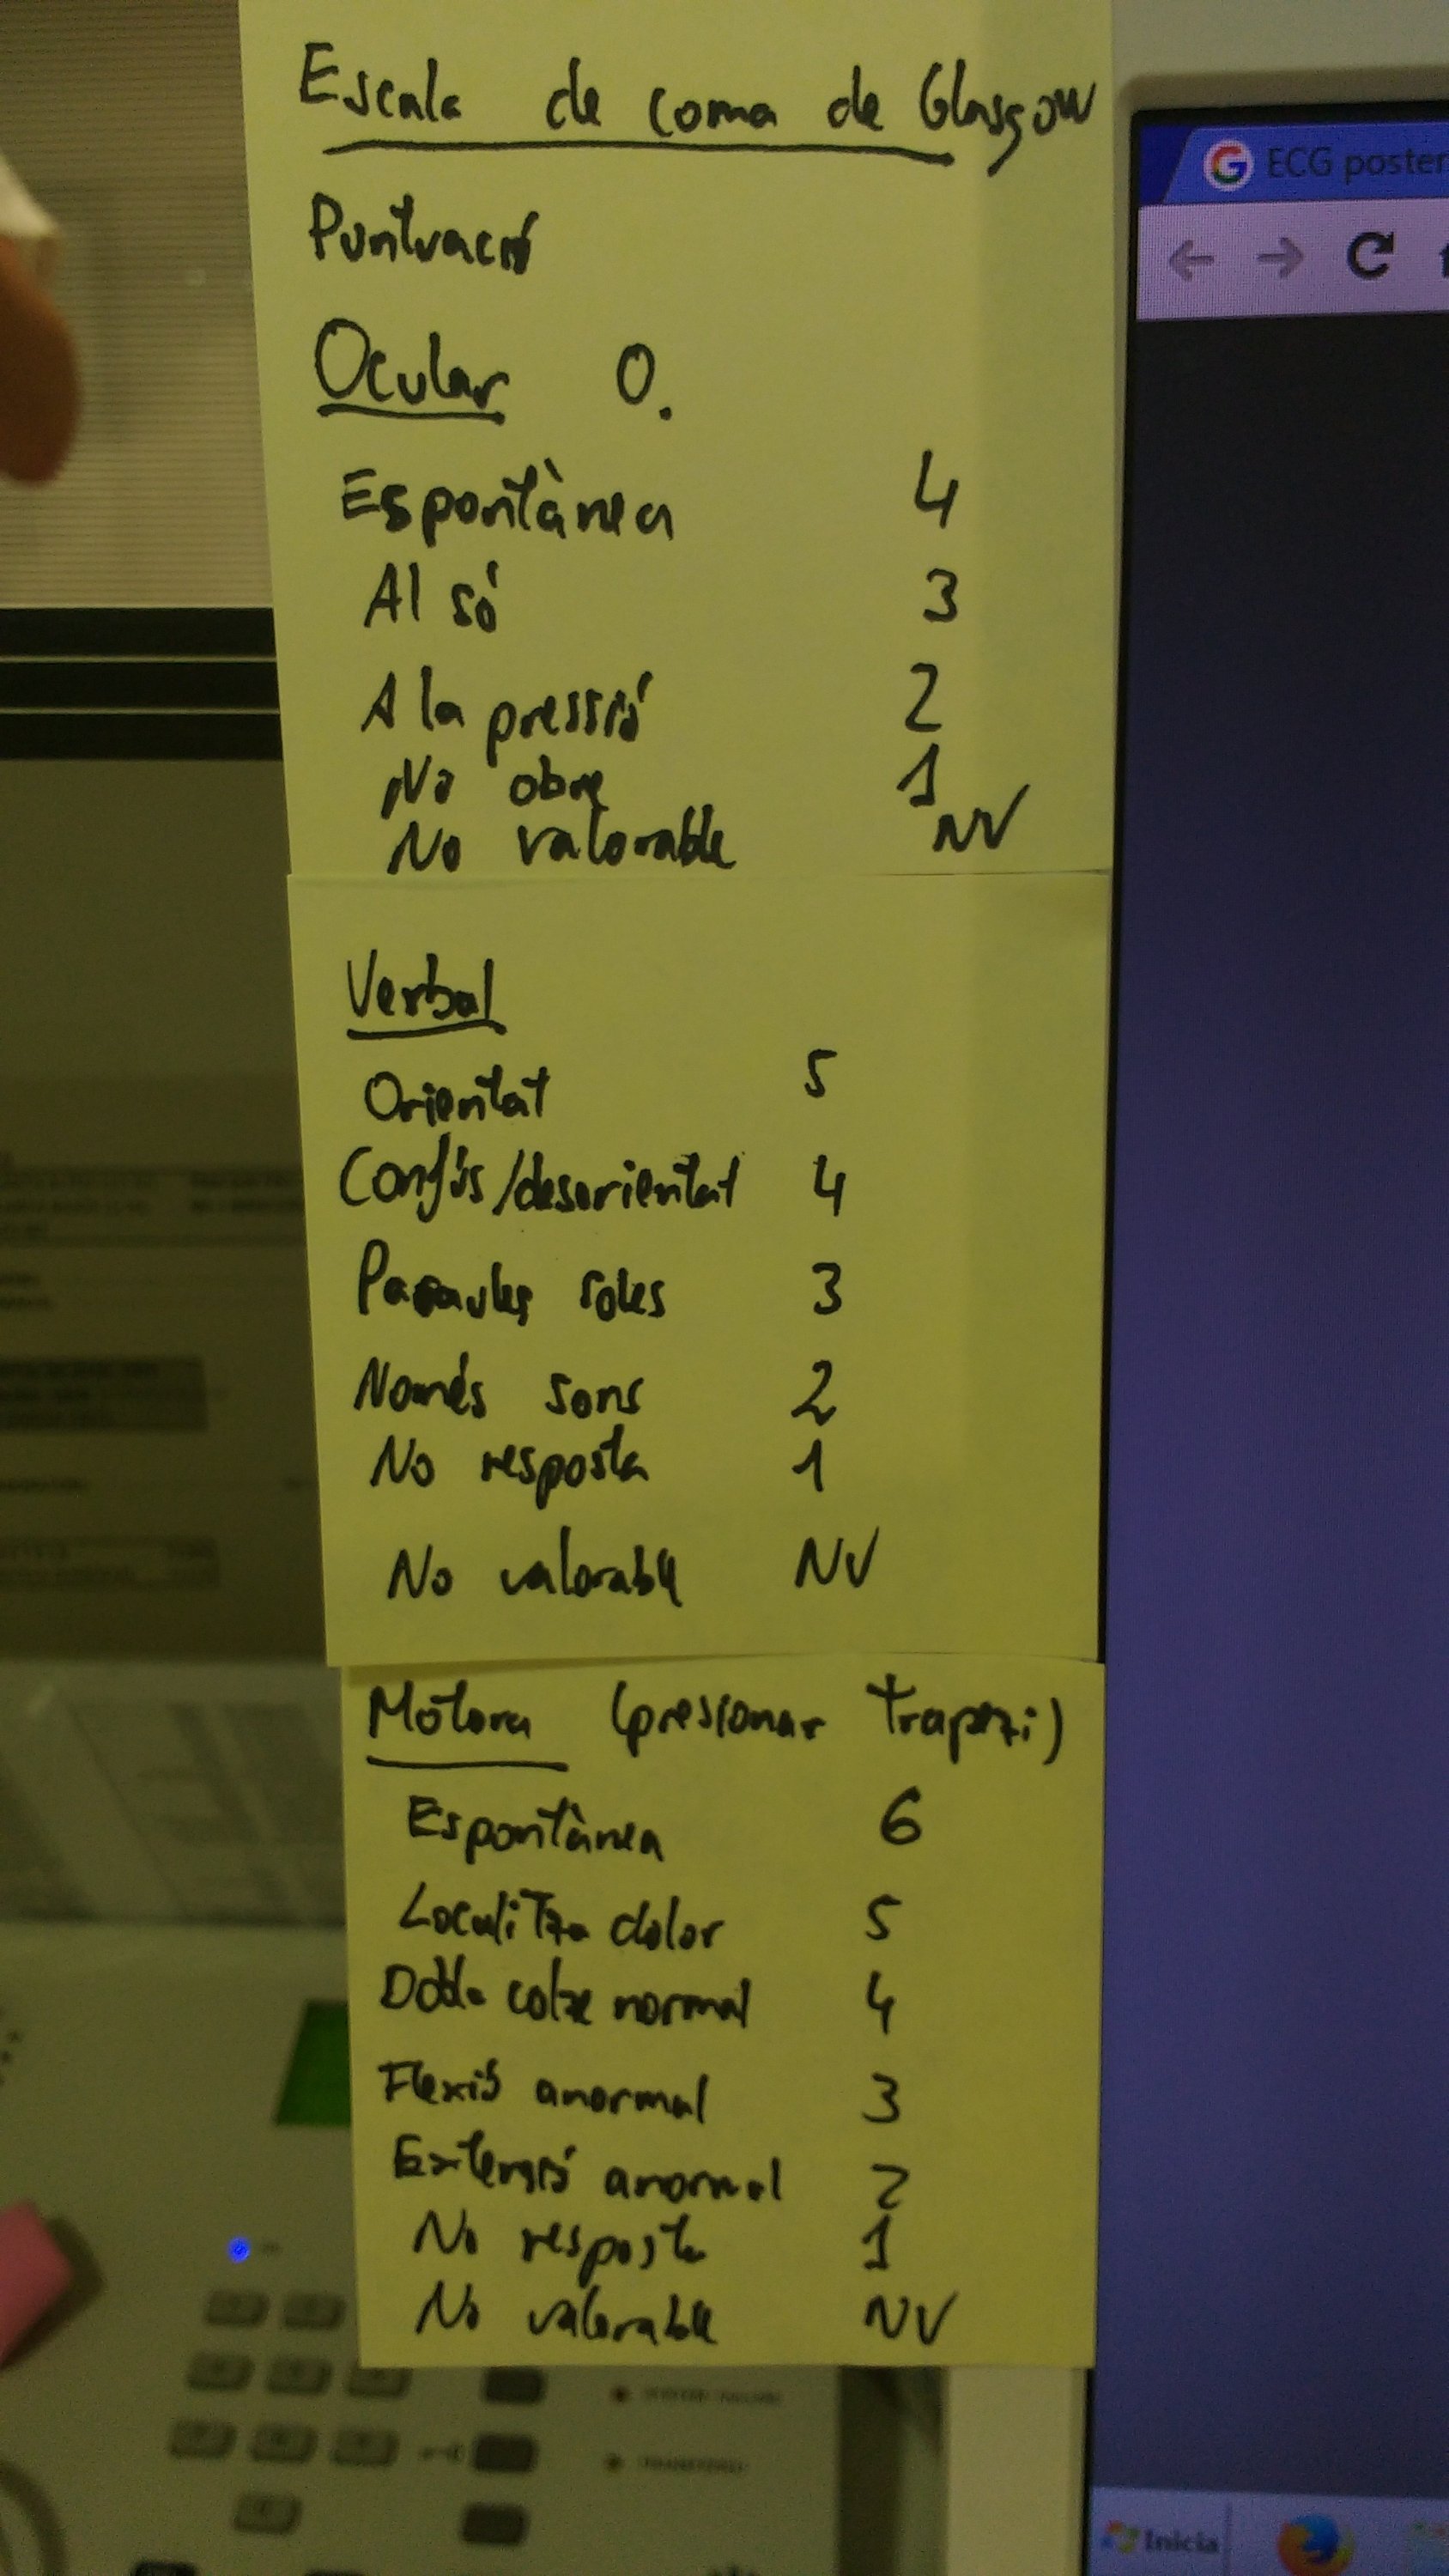 Escala de coma de Glasgow
Puntuació
Ocular O.
Espontànea 4
Al só 3
A la pressió 2
No obre 1
No valorable NV
Verbal
Orientat 5
Confús/desorientat 4
Paraules soles 3
Només sons 2
No resposta 1
No valorable NV
Motora (pressionar trapezi)
Espontànea 6
Localitza dolor 5
Dobla colze normal 4
Flexió anormal 3
Extensió anormal 2
No resposta 1
No valorable NV
ECG poster
Inicia